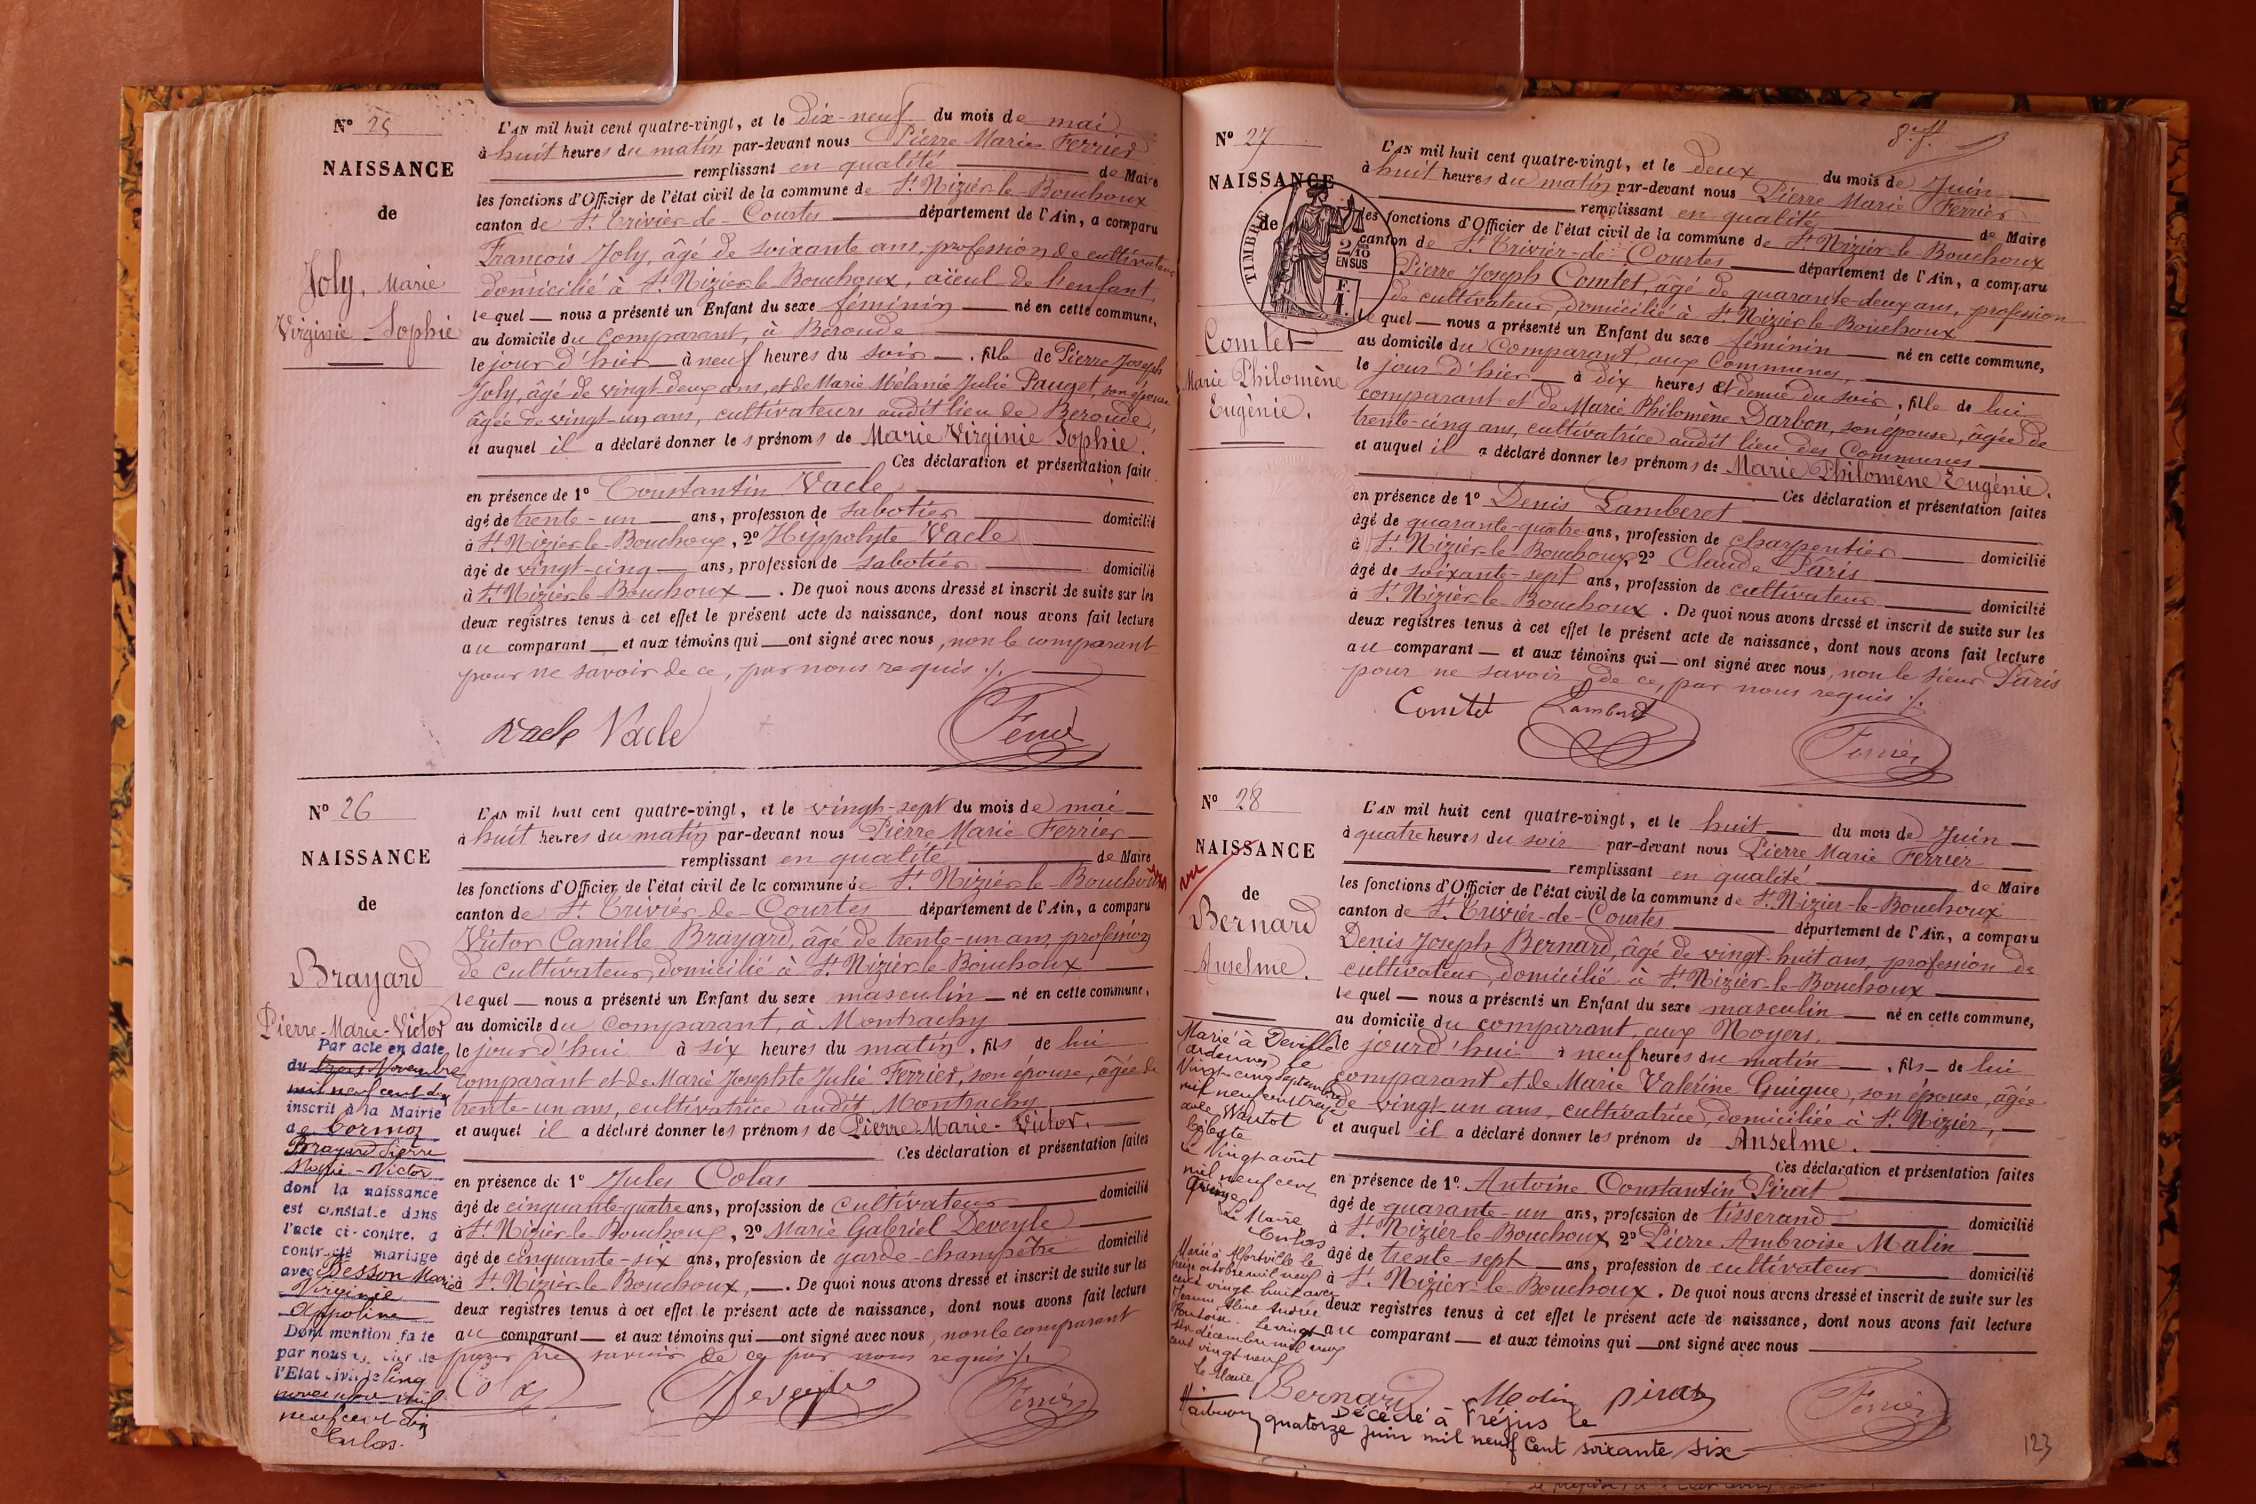 N° 25
NAISSANCE
de
Joly, Marie
Virginie Sophie
L'AN mil huit cent quatre-vingt, et le dix-neuf du mois de mai
à huit heures du matin par-devant nous Pierre Marie Ferrier
remplissant en qualité de Maire
les fonctions d'Officier de l'état civil de la commune de St Nizier-le-Bouchoux
canton de St Trivier-de-Courtes département de l'Ain, a comparu
François Joly, âgé de soixante ans, profession de cultivateur
domicilié à St Nizier-le-Bouchoux, aïeul de l'enfant,
lequel nous a présenté un Enfant du sexe féminin né en cette commune,
au domicile du comparant, à Béroude
le jour d'hier à neuf heures du soir, fille de Pierre Joseph
Joly, âgé de vingt-deux ans, et de Marie Mélanie Julie Pauget, son épouse
âgée de vingt-un ans, cultivateurs audit lieu de Béroude,
et auquel il a déclaré donner les prénoms de Marie Virginie Sophie.
Ces déclaration et présentation faites
en présence de 1° Constantin Vacle
âgé de trente-un ans, profession de sabotier domicilié
à St Nizier-le-Bouchoux, 2° Hippolyte Vacle
âgé de vingt-cinq ans, profession de sabotier domicilié
à St Nizier-le-Bouchoux. De quoi nous avons dressé et inscrit de suite sur les
deux registres tenus à cet effet le présent acte de naissance, dont nous avons fait lecture
au comparant et aux témoins qui ont signé avec nous, non le comparant
pour ne savoir de ce, par nous requis ./.
Vacle Vacle Ferrier
N° 26
NAISSANCE
de
Brayard
Pierre-Marie-Victor
Par acte en date
du trois Novembre
mil neuf cent dix
inscrit à la Mairie
de Cormoz
Brayard Pierre
Marie-Victor
dont la naissance
est constatée dans
l'acte ci-contre, a
contracté mariage
avec Besson Marie
Virginie
Appoline
Dont mention faite
par nous officier de
l'Etat civil le cinq
novembre mil
neuf cent dix
L'AN mil huit cent quatre-vingt, et le vingt-sept du mois de mai
à huit heures du matin par-devant nous Pierre Marie Ferrier
remplissant en qualité de Maire
les fonctions d'Officier de l'état civil de la commune de St Nizier-le-Bouchoux
canton de St Trivier-de-Courtes département de l'Ain, a comparu
Victor Camille Brayard, âgé de trente-un ans, profession
de cultivateur, domicilié à St Nizier-le-Bouchoux
lequel nous a présenté un Enfant du sexe masculin né en cette commune,
au domicile du comparant, à Montrachy
le jour d'hui à six heures du matin, fils de lui
comparant et de Marie Josephte Julie Ferrier, son épouse, âgée de
trente-un ans, cultivatrice audit Montrachy
et auquel il a déclaré donner les prénoms de Pierre-Marie-Victor.
Ces déclaration et présentation faites
en présence de 1° Jules Colas
âgé de cinquante-quatre ans, profession de cultivateur domicilié
à St Nizier-le-Bouchoux, 2° Marie Gabriel Deveyle
âgé de cinquante-six ans, profession de garde-champêtre domicilié
à St Nizier-le-Bouchoux, De quoi nous avons dressé et inscrit de suite sur les
deux registres tenus à cet effet le présent acte de naissance, dont nous avons fait lecture
au comparant et aux témoins qui ont signé avec nous, non le comparant
pour ne savoir de ce par nous requis ./.
Colas Deveyle Ferrier
N° 27
NAISSANCE
de
TIMBRE
2/10
EN SUS
F.
1.
Comtet
Marie Philomène
Eugénie.
L'AN mil huit cent quatre-vingt, et le deux du mois de Juin
à huit heures du matin par-devant nous Pierre Marie Ferrier
remplissant en qualité de Maire
les fonctions d'Officier de l'état civil de la commune de St Nizier-le-Bouchoux
canton de St Trivier-de-Courtes département de l'Ain, a comparu
Pierre Joseph Comtet, âgé de quarante-deux ans, profession
de cultivateur, domicilié à St Nizier-le-Bouchoux
lequel nous a présenté un Enfant du sexe féminin né en cette commune,
au domicile du comparant, aux Communes,
le jour d'hier à dix heures et demie du soir, fille de lui
comparant et de Marie Philomène Darbon, son épouse, âgée de
trente-cinq ans, cultivatrice audit lieu des Communes
et auquel il a déclaré donner les prénoms de Marie Philomène Eugénie.
Ces déclaration et présentation faites
en présence de 1° Denis Lamberet
âgé de quarante-quatre ans, profession de charpentier domicilié
à St Nizier-le-Bouchoux, 2° Claude Paris
âgé de soixante-sept ans, profession de cultivateur domicilié
à St Nizier-le-Bouchoux. De quoi nous avons dressé et inscrit de suite sur les
deux registres tenus à cet effet le présent acte de naissance, dont nous avons fait lecture
au comparant et aux témoins qui ont signé avec nous, non le sieur Pâris
pour ne savoir de ce, par nous requis ./.
Comtet Lamberet Ferrier
N° 28
NAISSANCE
vu
de
Bernard
Anselme.
Marié à Deville
(ardennes) le
Vingt-cinq Septembre
mil neuf cent treize
avec Wautot
Céleste
Le Vingt août
mil neuf cent
quinze
Le Maire
Marié à Albertville le
treize octobre mil neuf
cent vingt huit avec
Jeanne Aline Andrée
Le vingt
six décembre mil neuf
cent vingt neuf
Le Maire
L'AN mil huit cent quatre-vingt, et le huit du mois de Juin
à quatre heures du soir par-devant nous Pierre Marie Ferrier
remplissant en qualité de Maire
les fonctions d'Officier de l'état civil de la commune de St Nizier-le-Bouchoux
canton de St Trivier-de-Courtes département de l'Ain, a comparu
Denis Joseph Bernard, âgé de vingt-huit ans, profession de
cultivateur, domicilié à St Nizier-le-Bouchoux
lequel nous a présenté un Enfant du sexe masculin né en cette commune,
au domicile du comparant, aux Noyers,
le jour d'hui à neuf heures du matin, fils de lui
comparant et de Marie Valérine Guigue, son épouse, âgée
de vingt-un ans, cultivatrice, domiciliée à St Nizier,
et auquel il a déclaré donner les prénom de Anselme.
Ces déclaration et présentation faites
en présence de 1° Antoine Constantin Pirat
âgé de quarante-un ans, profession de tisserand domicilié
à St Nizier-le-Bouchoux, 2° Pierre Ambroise Malin
âgé de trente-sept ans, profession de cultivateur domicilié
à St Nizier-le-Bouchoux. De quoi nous avons dressé et inscrit de suite sur les
deux registres tenus à cet effet le présent acte de naissance, dont nous avons fait lecture
au comparant et aux témoins qui ont signé avec nous
Bernard Malin Pirat Ferrier
Décédé à Fréjus le
quatorze juin mil neuf cent soixante six
123